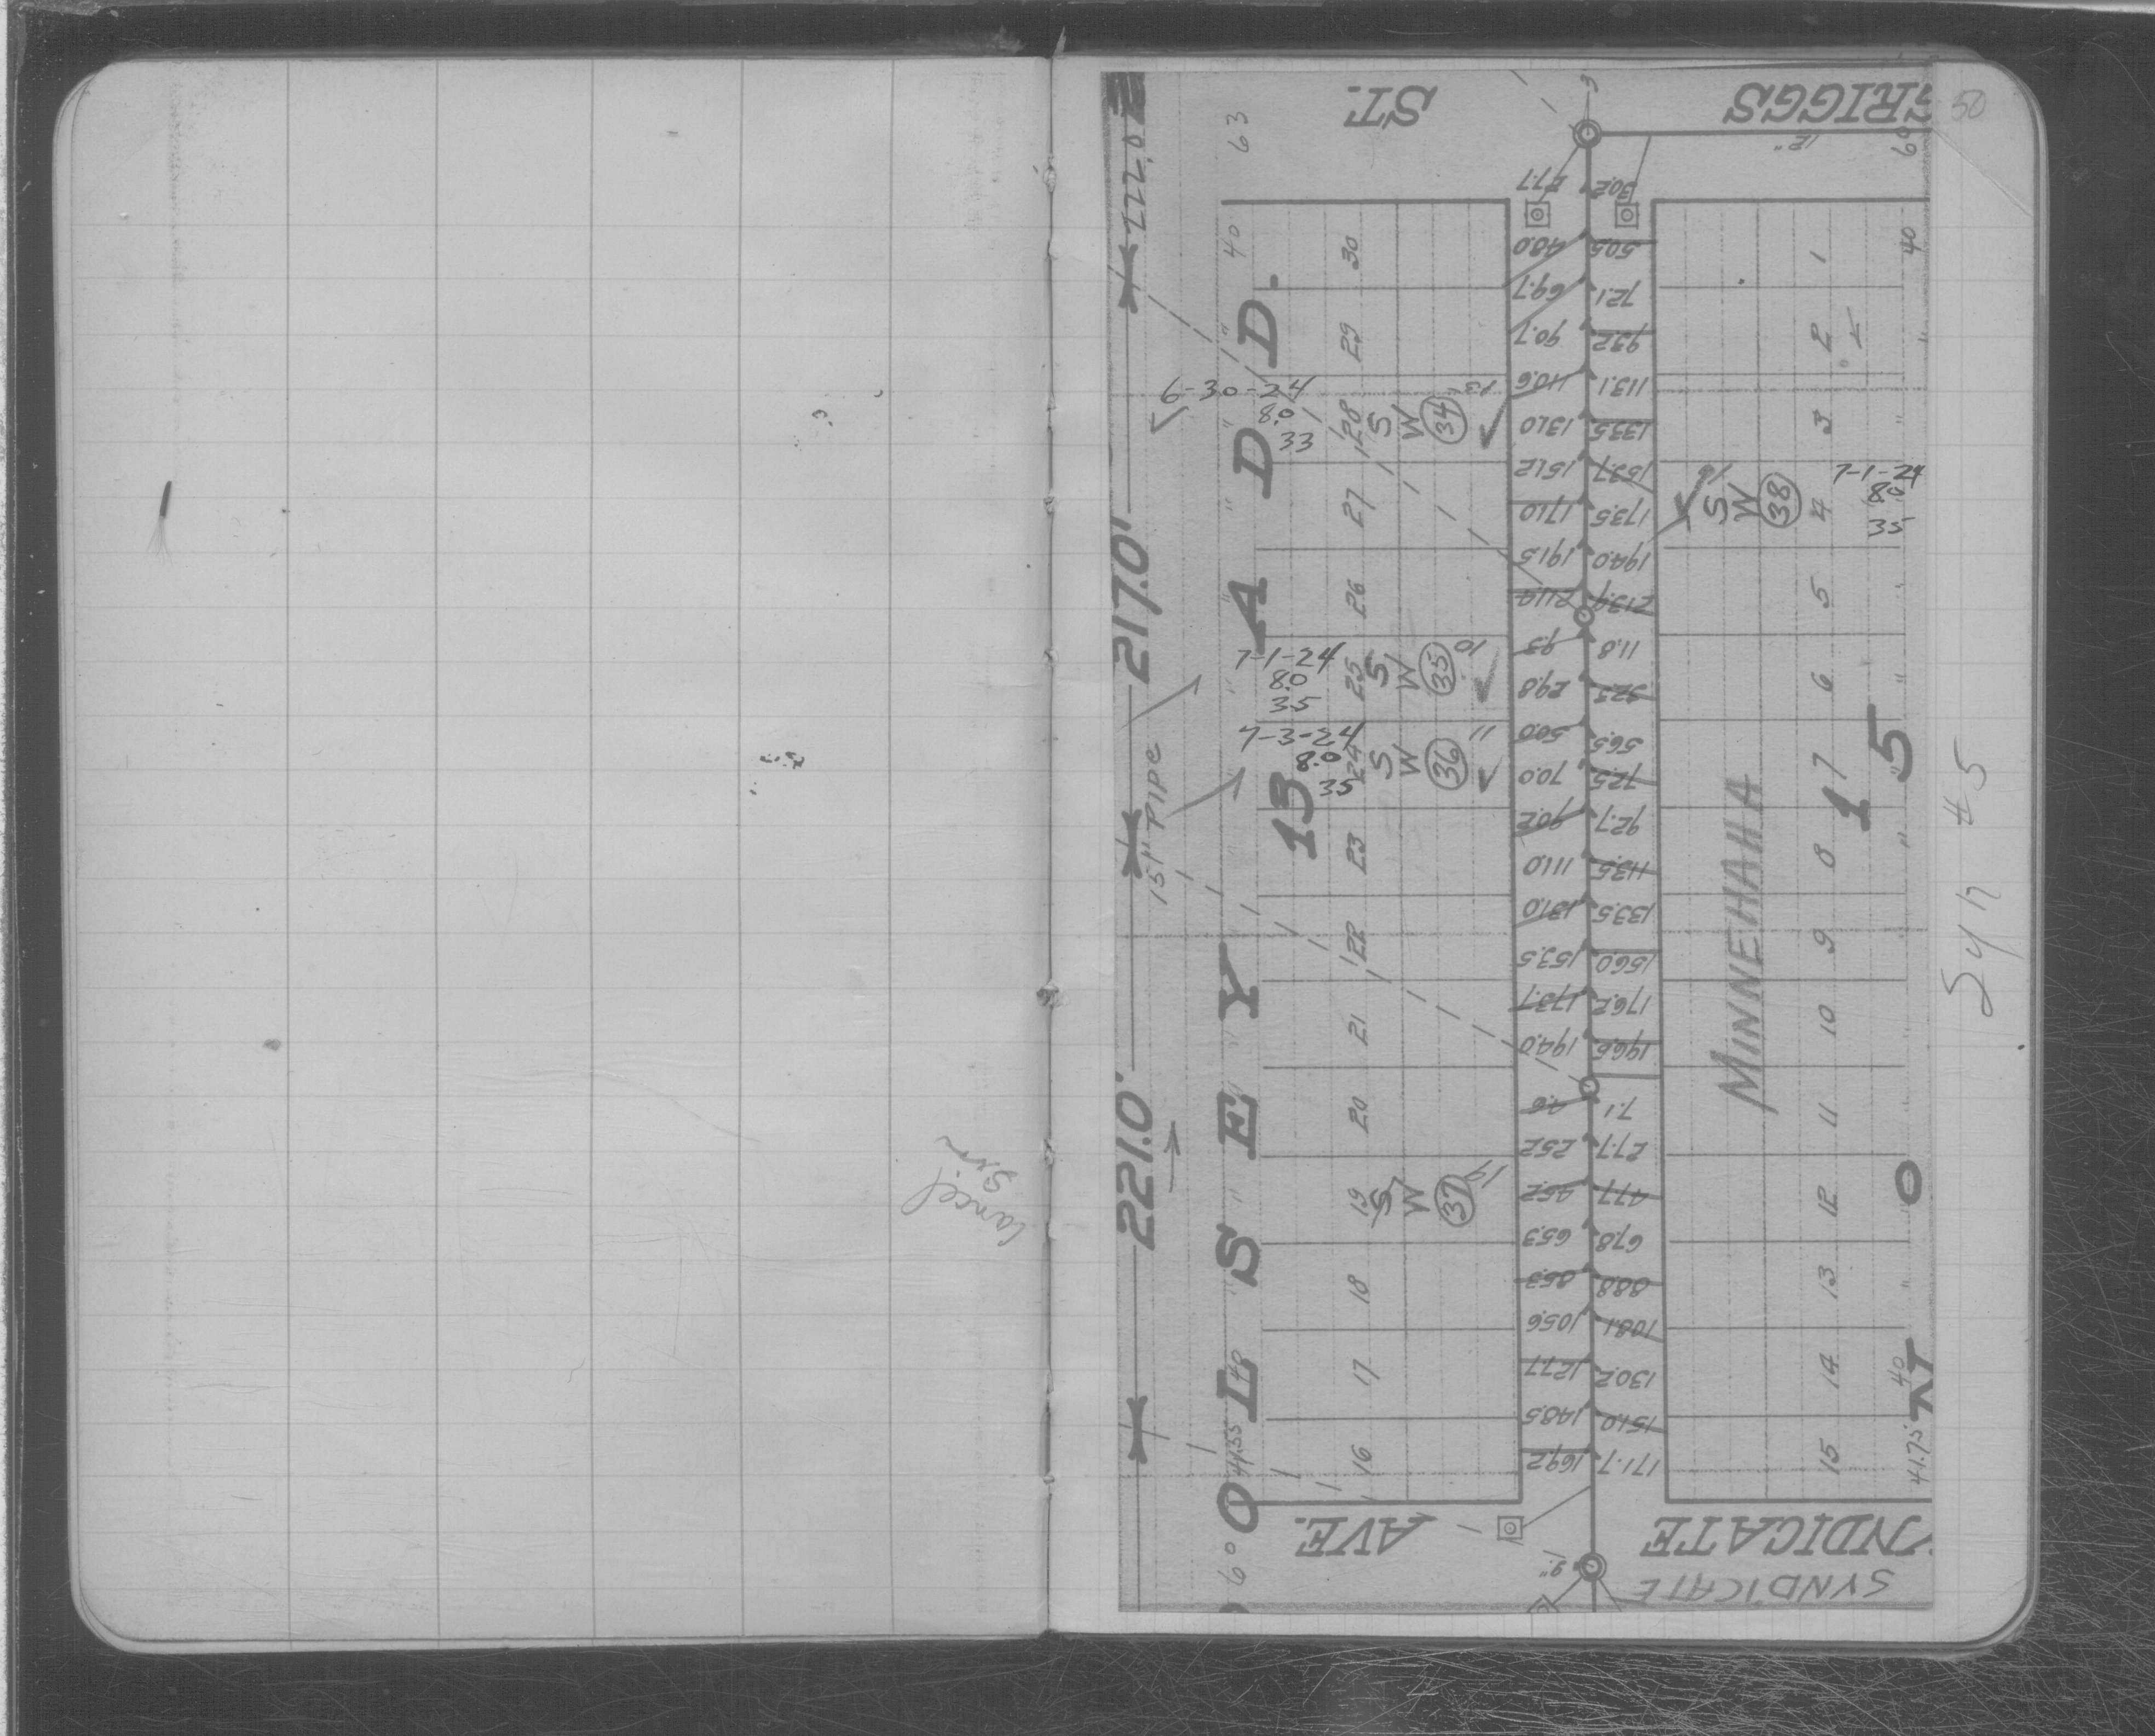 Cancel
Srv
50
GRIGGS
ST.
12"
60
63
222.0
217.0'
221.0'
15" PIPE
ADD.
13
OLSEY'S
27.7 30.2
48.0 50.5
69.7 72.1
90.7 93.2
110.6 113.1
131.0 133.5
151.2 153.7
171.0 173.5
191.5 194.0
211.4 213.9
9.3 11.8
29.8 32.3
50.0 56.5
70.0 72.5
90.2 92.7
111.0 113.5
131.0 133.5
153.5 156.0
173.7 176.2
194.0 196.6
4.6 7.1
25.2 27.7
45.2 47.7
65.3 67.8
86.3 88.8
105.6 108.1
127.7 130.2
148.5 151.0
169.2 171.7
40
30
29
6-30-24
8.0
33
28
S
W
34
27
26
7-1-24
8.0
35
25
S
W
35
10
7-3-24
8.0
35
24
S
W
36
11
23
22
21
20
19
S
W
37
19
18
17
40
16
44.35
60
40
1
2
3
7-1-24
8.0
35
4
S
W
38
5
6
7
8
9
10
11
12
13
14
40
15
41.75
MINNEHAHA
15
O
Syn #5
AVE.
9"
YNDICATE
SYNDICATE